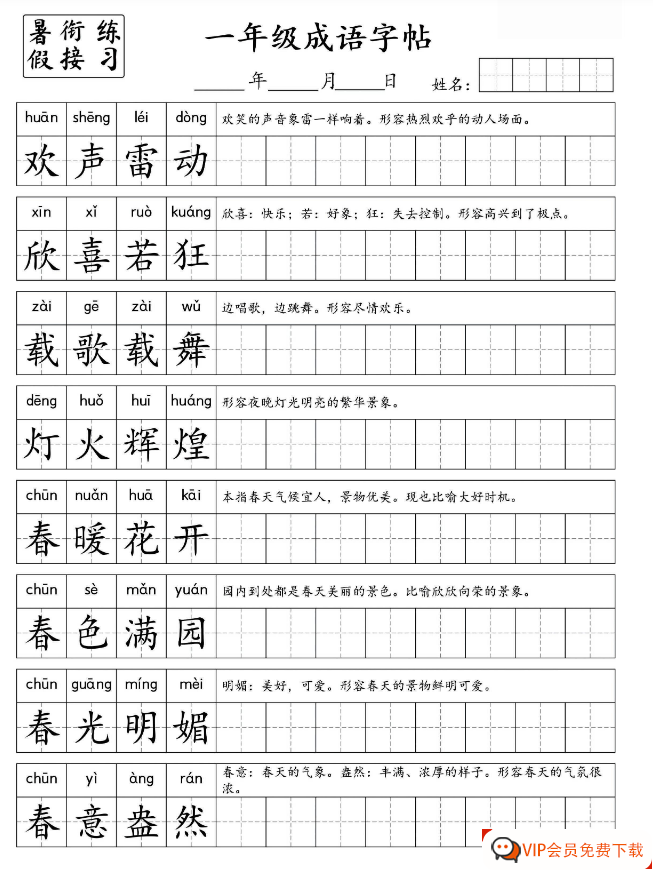 暑 衔 练
假 接 习
一年级成语字帖
年 月 日 姓名：
huān shēng léi dòng
欢笑的声音象雷一样响着。形容热烈欢乎的动人场面。
欢 声 雷 动
xīn xǐ ruò kuáng
欣喜：快乐；若：好象；狂：失去控制。形容高兴到了极点。
欣 喜 若 狂
zài gē zài wǔ
边唱歌，边跳舞。形容尽情欢乐。
载 歌 载 舞
dēng huǒ huī huáng
形容夜晚灯光明亮的繁华景象。
灯 火 辉 煌
chūn nuǎn huā kāi
本指春天气候宜人，景物优美。现也比喻大好时机。
春 暖 花 开
chūn sè mǎn yuán
园内到处都是春天美丽的景色。比喻欣欣向荣的景象。
春 色 满 园
chūn guāng míng mèi
明媚：美好，可爱。形容春天的景物鲜明可爱。
春 光 明 媚
chūn yì àng rán
春意：春天的气象。盎然：丰满、浓厚的样子。形容春天的气氛很
浓。
春 意 盎 然
VIP会员免费下载